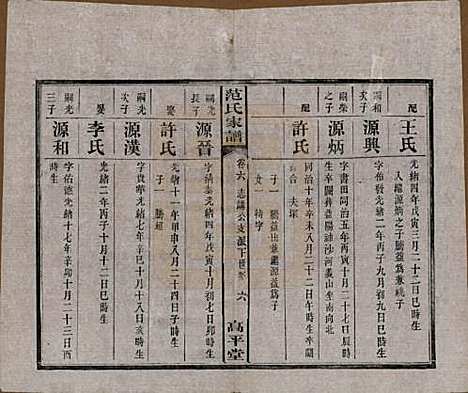 配
王氏
光緒四年戊寅三月二十二日巳時生
入繼源炳之子勝益爲兼祧子
嗣和
次子
源興
字啟發光緒二年丙子九月初九日巳時生
嗣榮
之子
源炳
字書田同治五年丙寅十月二十七日辰時
生卒闕葬益陽油沙河黃山坐南向北
配
許氏
同治十年辛未八月二十二日午時生卒闕
合夫塚
子一 勝益出兼繼源益爲子
女一 待字
范氏家譜
卷六 志議公支派下世系
六
高平堂
嗣光
長子
源晉
字 光緒四年戊寅十月初七日卯時生
娶
許氏
光緒十一年甲申八月二十四日子時生
子一 勝超
嗣光
次子
源漢
字貴華光緒十七年辛巳十月十八日亥時生
娶
李氏
光緒二年丙子十月十二日巳時生
嗣光
三子
源和
字佑德光緒十七年辛卯十月二十三日酉
時生